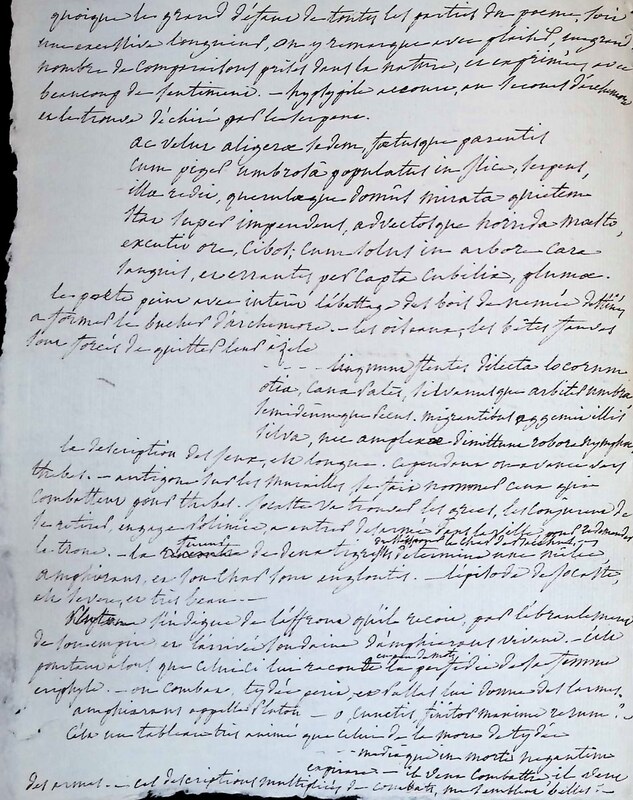 quoique le grand défaut de toutes les parties du poeme, soit
une excessive longueur, on y remarque avec plaisir, un grand
nombre de comparaisons prises dans la nature, et exprimées avec
beaucoup de sentiment. — hypsypile accourt, au secours d'archemore
et le trouve déchiré par le serpent.
ac velut aligeræ sedem, fœtusque parentis
cum piger umbrosâ populatus in ilice, serpens,
illa redit, querulæque domûs mirata quietem
stat super impendens, advectosque horrida mæsto,
excutit ore, cibos; cum solus in arbore cara
sanguis, et errantes per capta cubilia, plumæ.
le poëte peint avec intérêt l'abattage des bois de nemée destinés
a former le bucher d'archemore. — les oiseaux, les bêtes fauves
sont forcés de quitter leur azile
- - - - linquunt flentes dilecta locorum
otia, cana Pales, silvanusque arbiter umbræ
semideumque pecus. migrantibus aggemit illis
silva, nec amplexæ dimittunt robora nymphæ
la description des jeux, est longue. cependant on avance vers
thebes. — antigone sur les murailles se fait nommer ceux qui
combattent pour thebes. jocaste va trouver les grecs, les conjure de
se retirer, engage Polinice a entrer desarmé dans la ville pour redemander
le trone. — la de deux tigresses determine une mêlée
amphiaraus, et son char sont engloutis. — l'épisode de jocaste,
est severe, et très beau - -
Pluton s'indigne de l'effroi qu'il reçoit, par l'ébranlement
de son empire et l'arrivée soudaine d'amphiaraus vivant. — c'est
pourtant alors que celui ci lui raconte en peu de mots la perfidie de sa femme
eriphyle. — on combat, tydée perit, et pallas lui donne des larmes.
amphiaraus appelle Pluton — o, cunctis, finitor maxime rerum."
C'est un tableau très animé que celui de la mort de tydée
- - - mediaque in morte negantem
expirare — il veut combattre il veut
des armes. — ces descriptions multipliées de combats, me semblent belles. —